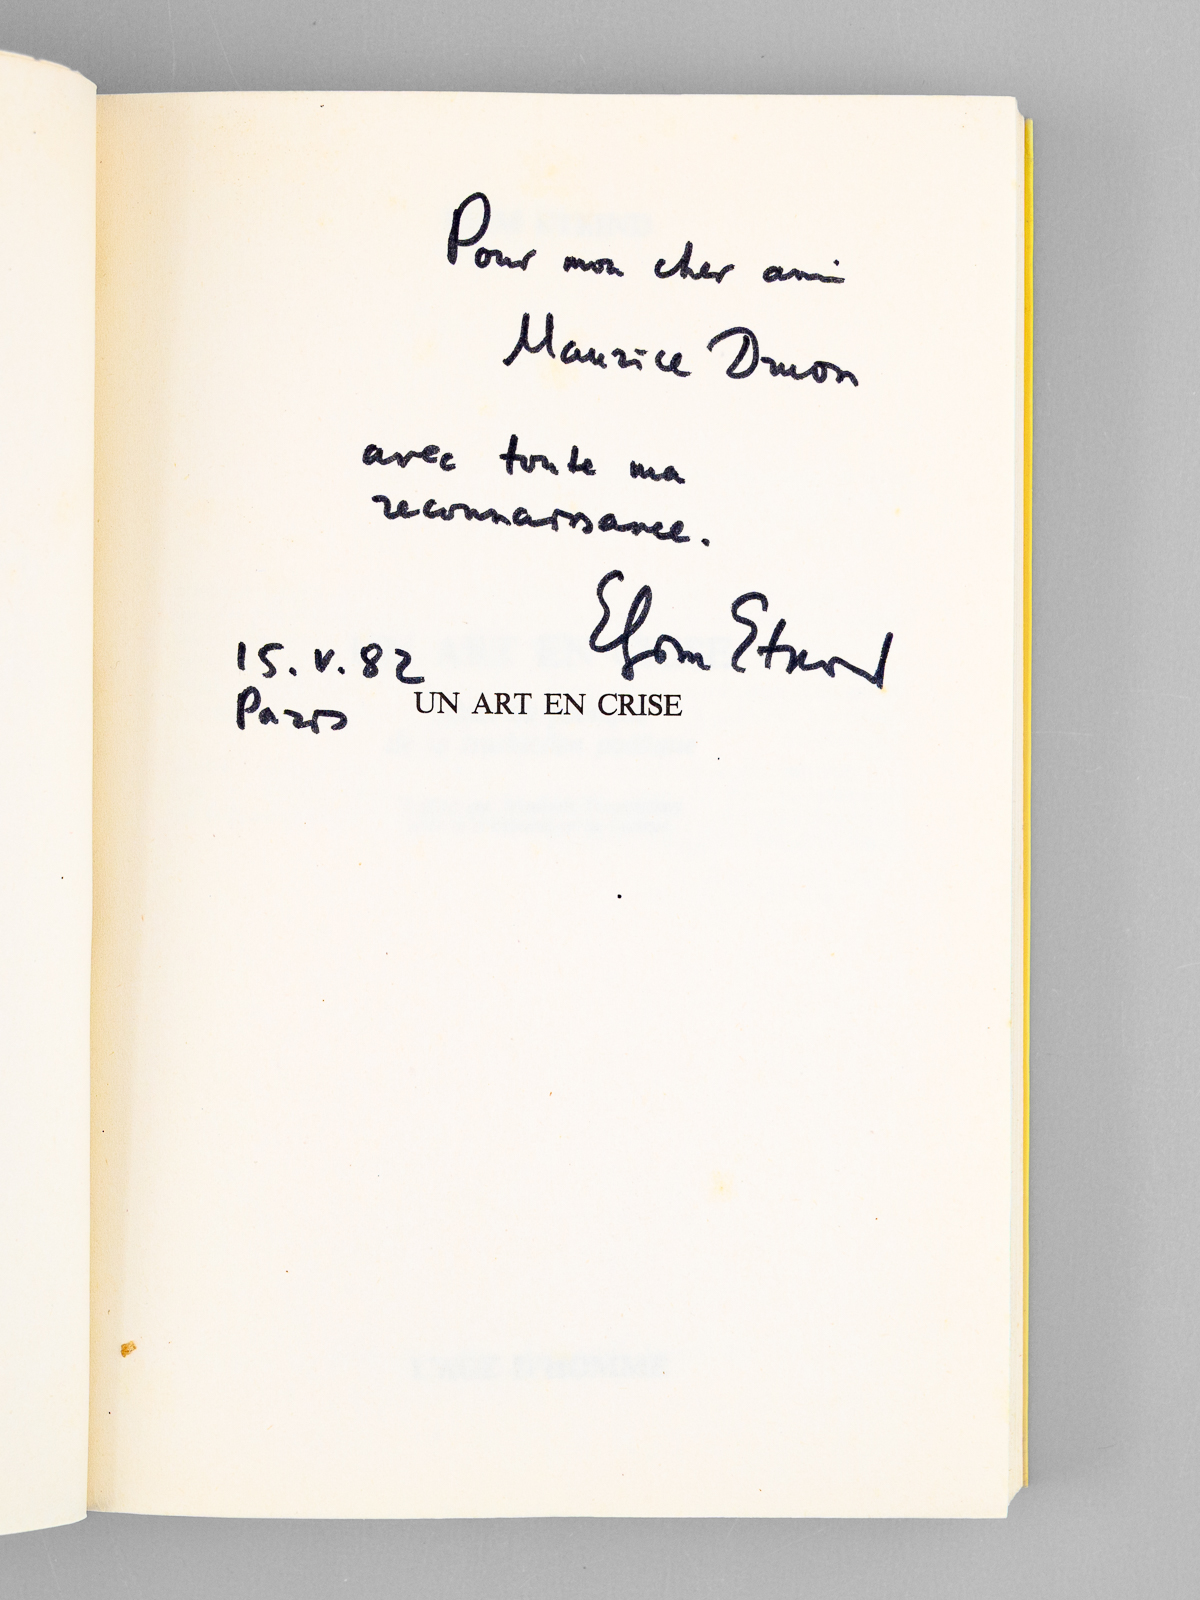 Pour mon cher ami
Maurice Druon
avec toute ma
reconnaissance.
Efim Etkind
15.V.82
Paris
UN ART EN CRISE